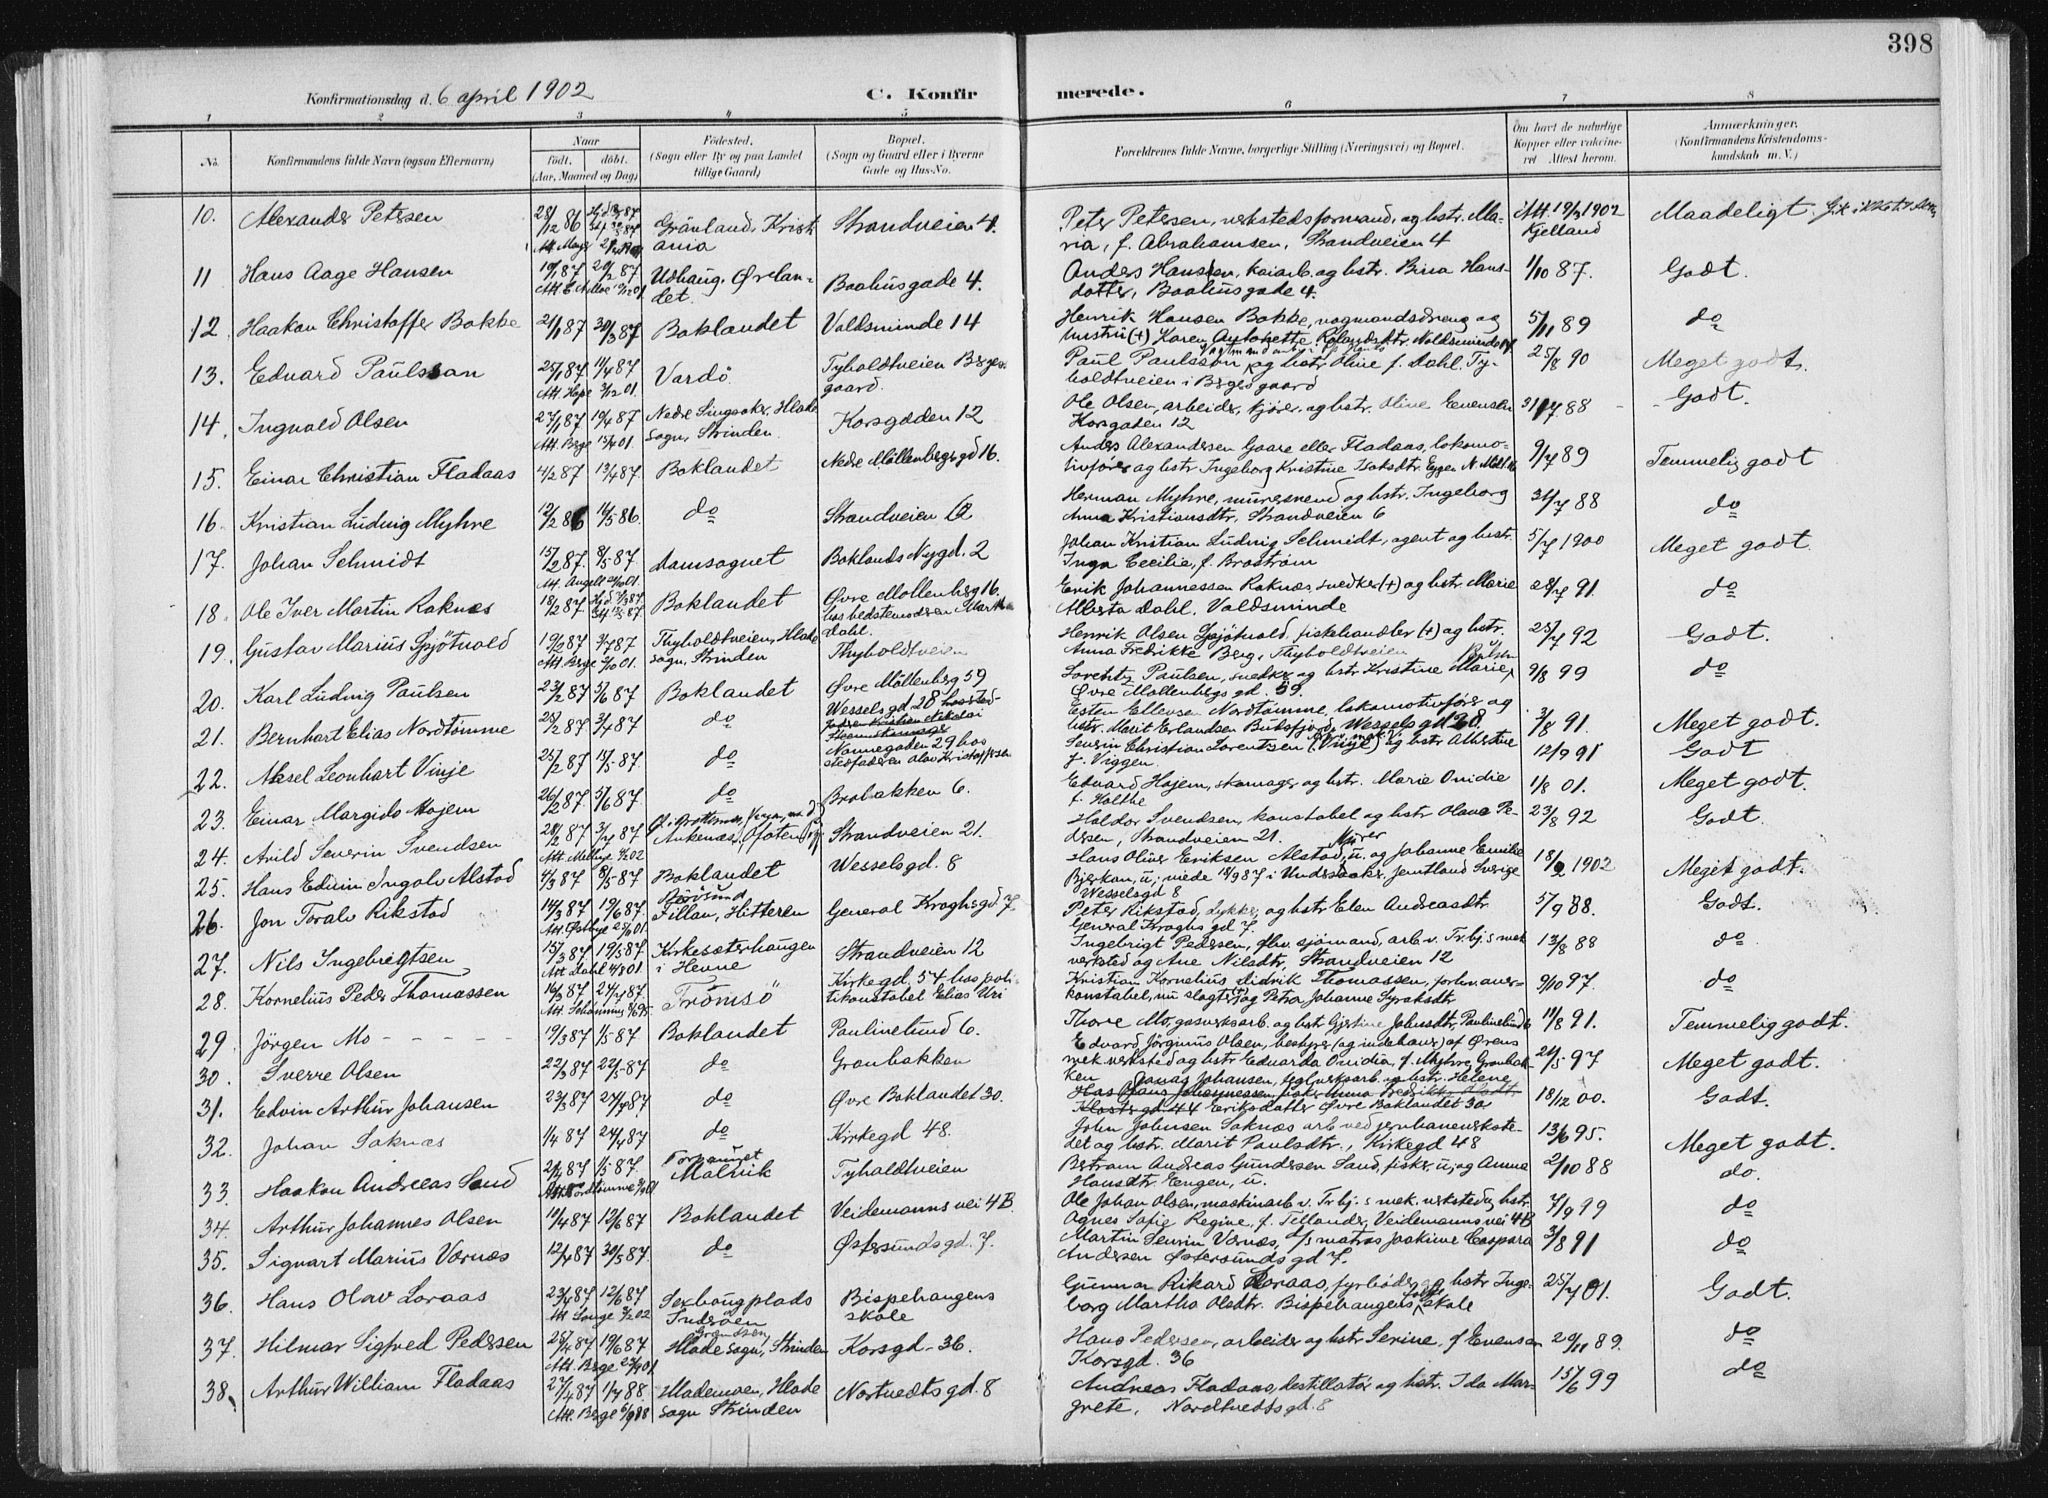 398
Konfirmationsdag d. 6 april 1902 C. Konfirmerede.
1 2 3 4 5 6 7 8
No. Konfirmandens fulde Navn (ogsaa Efternavn) Naar født, døbt. (Aar, Maaned og Dag) Fødested. (Sogn eller By og paa Landet tillige Gaard) Bopæl. (Sogn og Gaard eller i Byerne Gade og Hus-No. Forældrenes fulde Navne, borgerlige Stilling (Næringsvei) og Bopæl. Om havt de naturlige Kopper eller vaccineret Attest herom. Anmærkninger. (Konfirmandens Kristendomskundskab m. V.)
10. Alexander Petersen 28/12 86 Grönland, Kristiania Strandveien 4. Peter Petersen, verkstedsformand, og hstr. Maria, f. Abrahamsen, Strandveien 4 Att. 19/3 1902 Kjelland Maadeligt.
11 Hans Aage Hansen 19/1 87 20/2 87 Udhaug, Ørlandet. Baahusgade 4. Anders Hansen, kaiarb. og hstr. Bina Hansdatter, Baahusgade 4. 1/10 87. Godt.
12. Haakon Christoffer Bakke 21/1 87 30/3 87 Baklandet Voldsminde 14 Henrik Hansen Bakke, vognmandsdreng og hustru (+) Karen Antonette 5/11 89 do
13. Edvard Paulssan 25/1 87 11/4 87 Att. Hope 3/12 01. Vardö Tyholdtveien Bergsgaard. Paul Paulsson og hstr. Oline f. Dahl. Tyholdtveien i Bergsgaard 25/8 90 Meget godt.
14. Ingvald Olsen 27/1 87 19/4 87 Nedre Singsaker, Hlade sogn, Strinden. Korsgaden 12 Ole Olsen, arbeider, kjører, og hstr. Oline Evensen Korsgaden 12 31/7 88 Godt.
15. Einar Christian Fladaas 4/2 87 13/4 87. Baklandet Nedre Möllenbergsgd 16. Anders Alexandersen Gaare eller Fladaas, lokomotivfører og hstr Ingeborg Kristine 9/7 89 Temmelig godt
16. Kristian Ludvig Myhre 12/2 86 16/5 86. do Strandveien 6 Herman Myhre, muresvend og hstr. Ingeborg Anna Kristiansdtr. Strandveien 6 31/7 88 do
17. Johan Schmidt 15/2 87. 8/5 87 Domsognet Baklands Nygd. 2 Johan Kristian Ludvig Schmidt, agent og hstr. Inga Cecilie, f. Broström 5/7 1900 Meget godt.
18. Ole Iver Martin Raknes 18/2 87 Baklandet Øvre Möllenberg 16. hos bedstemoderen Dahl. Erik Johannessen Raknæs, snedker (+) og hstr Marie Alberta Dahl, Voldsminde 28/7 91. do
19. Gustav Marius Gjötvold 19/2 87 3/4 87 Thyholdtveien, Hlade sogn, Strinden Thyholdtveien Henrik Olsen Gjötvold, fiskehandler (+) og hstr. Anna Fredrikke Berg, Thyholdtveien 25/7 92 Godt.
20. Karl Ludvig Paulsen 23/2 87 5/6 87 Baklandet Øvre Möllenberg 59 Lorentz Paulsen, snedker og hstr Kristine Marie, Øvre Möllenbergs gd. 59. 9/8 99 do
21. Bernhart Elias Nordtömme 28/2 87 3/4 87 do Wessels gd. 28 Esten Ellevsen Nordtömme, lokomotivfører og hstr. Marit Erlandsen Budsfjord, Wessels gd 28. 3/8 91. Meget godt.
22. Aksel Leonhart Vinje 25/2 87 15/5 87. do Nonnegaden 29 hos stedfaderen Olav Kristoffersen Severin Christian Lorentzen (Vinje) og hstr. Albertine f. Viggen. 12/9 91 Godt
23. Einar Margido Hojem 26/2 87 5/6 87. do Brobakken 6. Edvard Hojem, skomager og hstr. Marie Ovidie f. Holthe 1/8 01. Meget godt.
24. Arild Severin Svendsen 28/2 87 3/7 87 Ankenæs, Ofoten Strandveien 21. Haldor Svendsen, konstabel og hstr Olava Pedersen, Strandveien 21. 23/8 92 Godt.
25. Hans Edvin Ingolv Alstad 4/3 87 8/5 87 Baklandet Wesselsgd. 8 Hans Oliver Eriksen Alstad, u. og Johanne Emilie Bjerkan, u; viede 18/9 87 i Undersaker, Jemtland Sverige Wesselsgd 8 18/2 1902 Meget godt.
26. Jon Toralv Rikstad 14/3 87 19/6 87. Fillan, Hitteren General Kroghs gd. 7 Peter Rikstad, lykter, og hstr Elen Andreasdtr General Kroghs gd 7. 5/9 88. Godt.
27. Nils Ingebrigtsen 15/3 87 19/5 87 Att. Dahl 4/8 01. Kirkesæterhaugen i Hevne Strandveien 12 Ingebrigt Pedersen, fhv. sjömand, arb. v. Tr.hj.s mek verksted og Ane Nilsdtr, Strandveien 12 13/8 88 do
28. Kornelius Peder Thomassen 16/3 87 24/7 87 Tromsö Kirkegd. 54 hos politikonstabel Elias Uri Kristian Kornelius Didrik Thomassen, forhenværkonstabel, nu slagter (+) og Petra Johanne Syraksdtr 9/10 97. do
29. Jörgen Mo - - - - - 19/3 87 1/5 87 Baklandet Paulinelund 6. Thore Mo, gasverksarb. og hstr Gjertine Johnsdtr, Paulinelund 6 11/8 91. Temmelig godt.
30. Sverre Olsen 22/3 87 22/5 87 do Granbakken Edvard Jörginus Olsen, bestyrer (og indehaver) af Ørens mek. verksted og hstr Eduarda Ovidia, f. Myhre, Granbakken 21/5 97 Meget godt.
31. Edvin Arthur Johansen 23/3 87 24/4 87 do Øvre Baklandet 30. Johansen, teglverksarb. og hstr. Helene Eriksdatter Øvre Baklandet 30 18/12 00. Godt.
32. Johan Saknæs 1/4 87 24/4 87 do Kirkegd 48. John Johnsen Saknæs arb ved jernbaneverkstedet og hstr. Marit Paulsdtr., Kirkegd 48 13/6 95. Meget godt.
33. Haakon Andreas Sand 2/4 87 1/5 87. Malvik Tyholdtveien Bertram Andreas Gundersen Sand, fisker, u, og Anna Hansdtr. Engen, u. 2/10 88 do.
34. Arthur Johannes Olsen 10/4 87 12/6 87 Baklandet Veidemanns vei 4B. Ole Johan Olsen, maskinarb v. Tr.hj.s mek. verksted og hstr. Agnes Sofie Regine, f. Tillander, Veidemanns vei 4B 7/9 99 do
35. Sigvart Marius Værnæs 12/4 87 30/5 87. do Østersunds gd. 7. Martin Severin Værnæs, matros Joakime Caspara Andersen Østersunds gd 7. 3/8 91 do
36. Hans Olav Loraas 23/4 87 12/6 87 Sexhaugplads Inderöen Bispehaugens skole Gunnar Rikard Loraas, fyrböder og hstr Ingeborg Martha Olsdtr. Bispehaugens skole 25/7 01. Godt.
37. Hilmar Sigfred Pedersen 25/4 87 19/6 87 Hlade sogn, Strinden Korsgd. 36. Hans Pedersen, arbeider og hstr Serine, f Evensen Korsgd. 36 20/11 89. do
38. Arthur William Fladaas 27/4 87 1/7 88 Hlademoen, Hlade sogn Strinden Nortvedts gd. 8 Andreas Fladaas, destillatör og hstr. Ida Margrete, Nordtvedts gd. 8 15/6 99 do